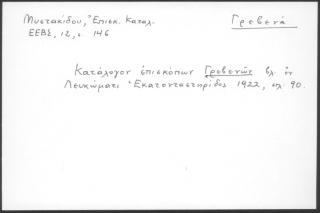 Μυστακίδου, Ἐπισκ. Καταλ.
Γρεβενά
ΕΕΒΣ, 12, σ. 146
Κατάλογον ἐπισκόπων Γρεβενῶν βλ. ἐν
Λευκώματι Ἑκατονταετηρίδος 1922, σελ. 90.